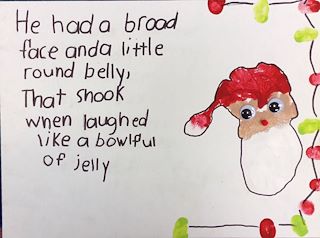 He had a broad
face and a little
round belly,
That shook
when laughed
like a bowlful
of jelly